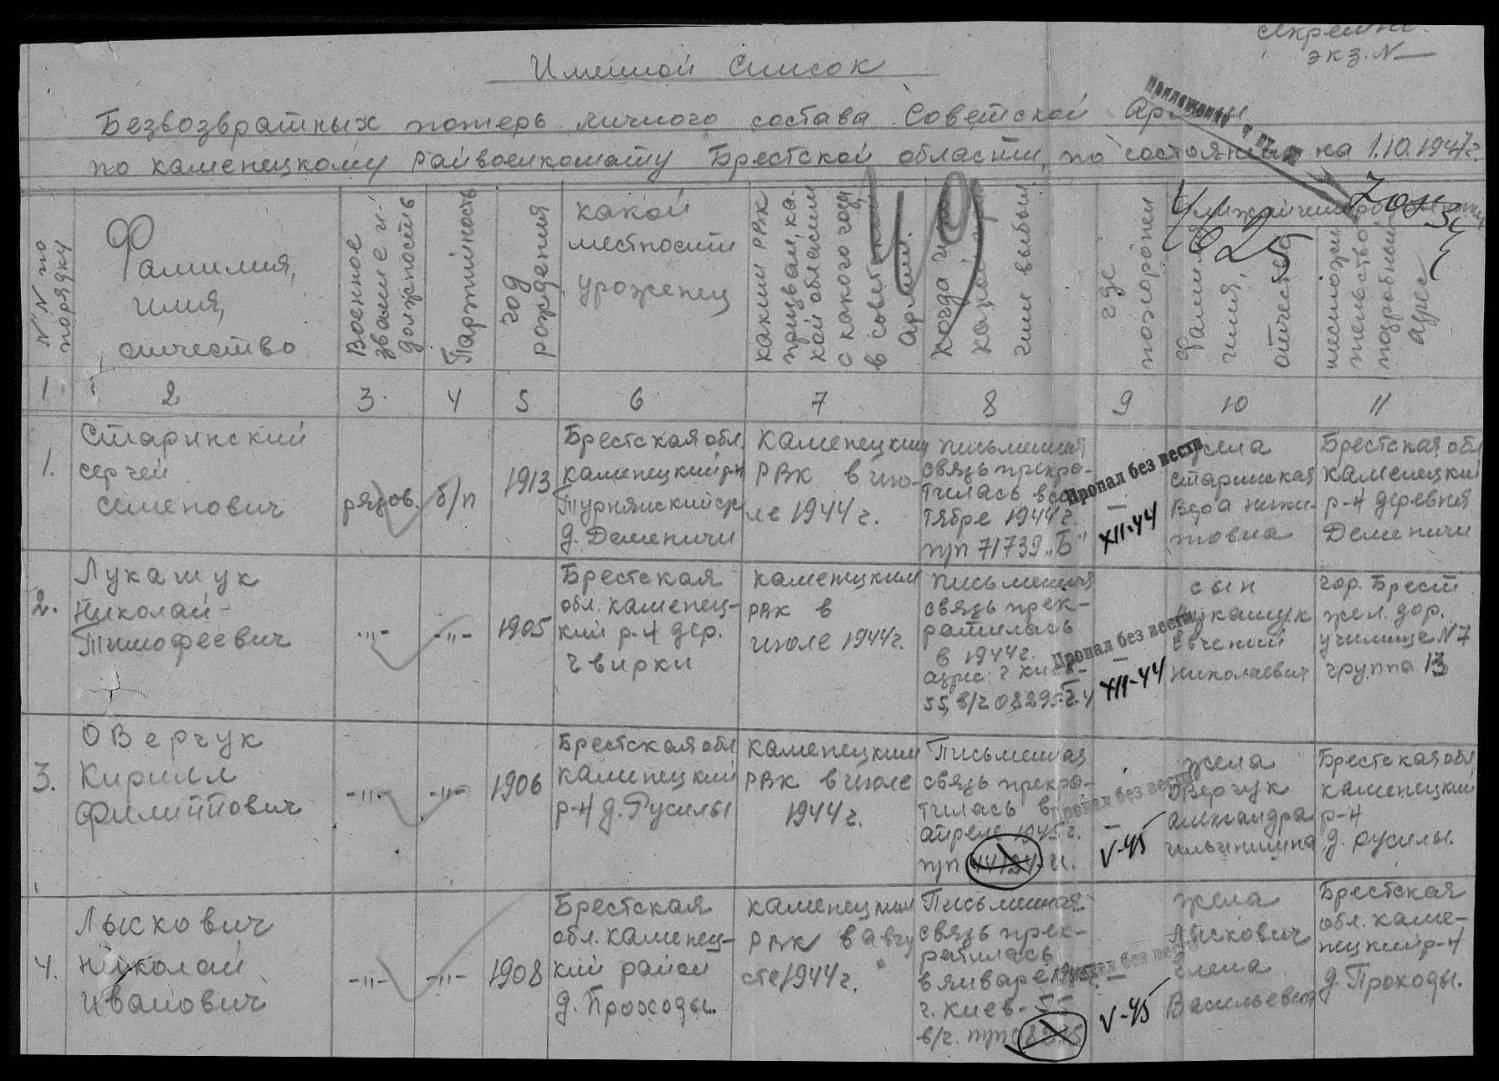 экз. N —
Именной список
Безвозвратных потерь личного состава Советской Армии
по каменецкому райвоенкомату Брестской области по состоянию на 1.10.1947г.
49
4625
N N по порядку
Фамилия,
имя,
отчество
Военное звание и должность
Партийность
год рождения
какой
местности
уроженец
каким РВК призван, какой области с какого года в советской армии.
Когда и по какой
выбыл
где похоронен
Фамилия имя, отчество
местожительство подробный адрес
1 2 3 4 5 6 7 8 9 10 11
1.
Старинский
сергей
семенович
рядов.
б/п
1913
Брестская обл.
каменецкий р-н
Турнянский с/с
д. Деменичи
каменецким
РВК в ию-
ле 1944 г.
письменная
связь прекра-
тилась в сен-
тябре 1944 г.
п/п 71739 „Б"
Пропал без вести
—
XII-44
жена
старинская
Вера Ники-
товна
Брестская обл
каменецкий
р-н деревня
Деменичи
2.
Лукашук
Николай
Тимофеевич
-"-
-"-
1905
Брестская
обл. каменец-
кий р-н дер.
Чвирки
каменецким
РВК в
июле 1944г.
письменная
связь прек-
ратилась
в 1944г.
адрес: г Киев-
55, в/ч 08295-г-у
Пропал без вести
—
XII-44
сын
Лукашук
Евгений
николаевич
гор. Брест
жел. дор.
училище N7
группа 13
3.
Оверчук
Кирилл
Филиппович
-"-
-"-
1906
Брестская обл
каменецкий
р-н д. Русилы
каменецким
РВК в июле
1944 г.
Письменная
связь прекра-
тилась в
апреле 1945 г.
Пропал без вести
—
V-45
жена
Оверчук
александра
ильинична
Брестская обл
каменецкий
р-н
д. русилы.
4.
Лыскович
николай
иванович
-"-
-"-
1908
Брестская
обл. каменец-
кий район
д. Проходы.
каменецким
РВК в авгу
сте 1944 г.
Письменная
связь прек-
ратилась
в январе 1945г.
г. Киев-55
в/ч. п/п
Пропал без вести
—
V-45
жена
Лыскович
Елена
Васильевна
Брестская
обл. каме-
нецкий р-н
д. Проходы.